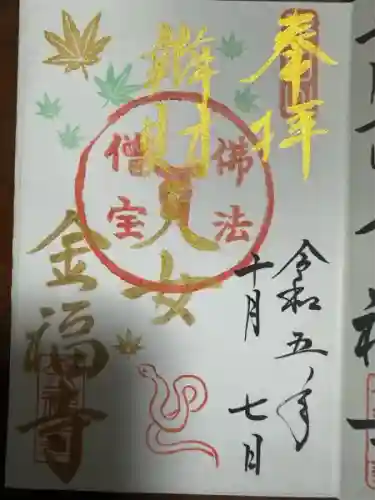 奉拝
令和五年
十月七日
辨財天女
佛法
僧宝
金福寺